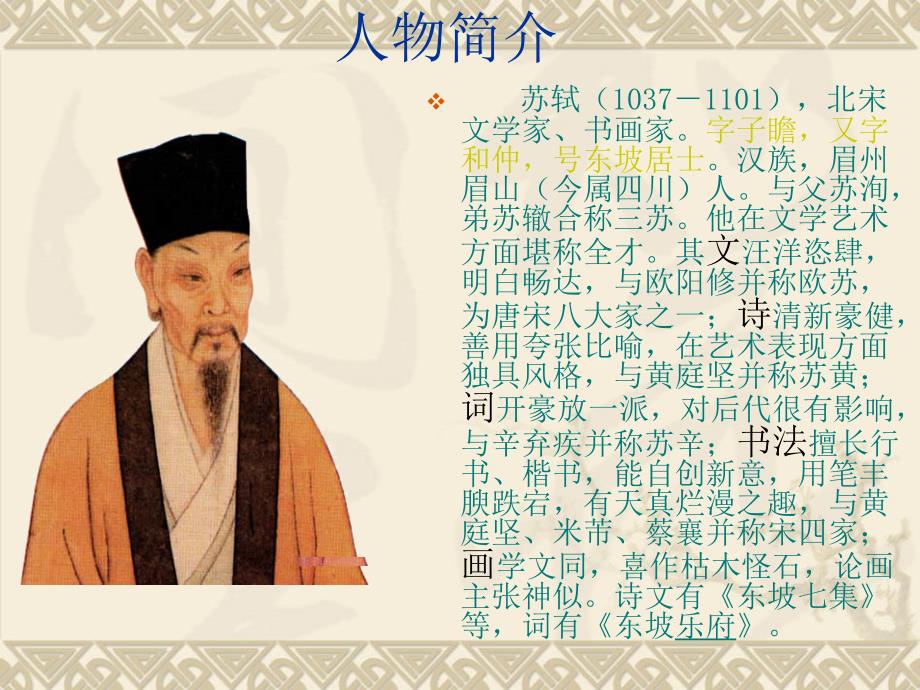 人物简介
苏轼（1037－1101），北宋
文学家、书画家。字子瞻，又字
和仲，号东坡居士。汉族，眉州
眉山（今属四川）人。与父苏洵，
弟苏辙合称三苏。他在文学艺术
方面堪称全才。其文汪洋恣肆，
明白畅达，与欧阳修并称欧苏，
为唐宋八大家之一；诗清新豪健，
善用夸张比喻，在艺术表现方面
独具风格，与黄庭坚并称苏黄；
词开豪放一派，对后代很有影响，
与辛弃疾并称苏辛；书法擅长行
书、楷书，能自创新意，用笔丰
腴跌宕，有天真烂漫之趣，与黄
庭坚、米芾、蔡襄并称宋四家；
画学文同，喜作枯木怪石，论画
主张神似。诗文有《东坡七集》
等，词有《东坡乐府》。